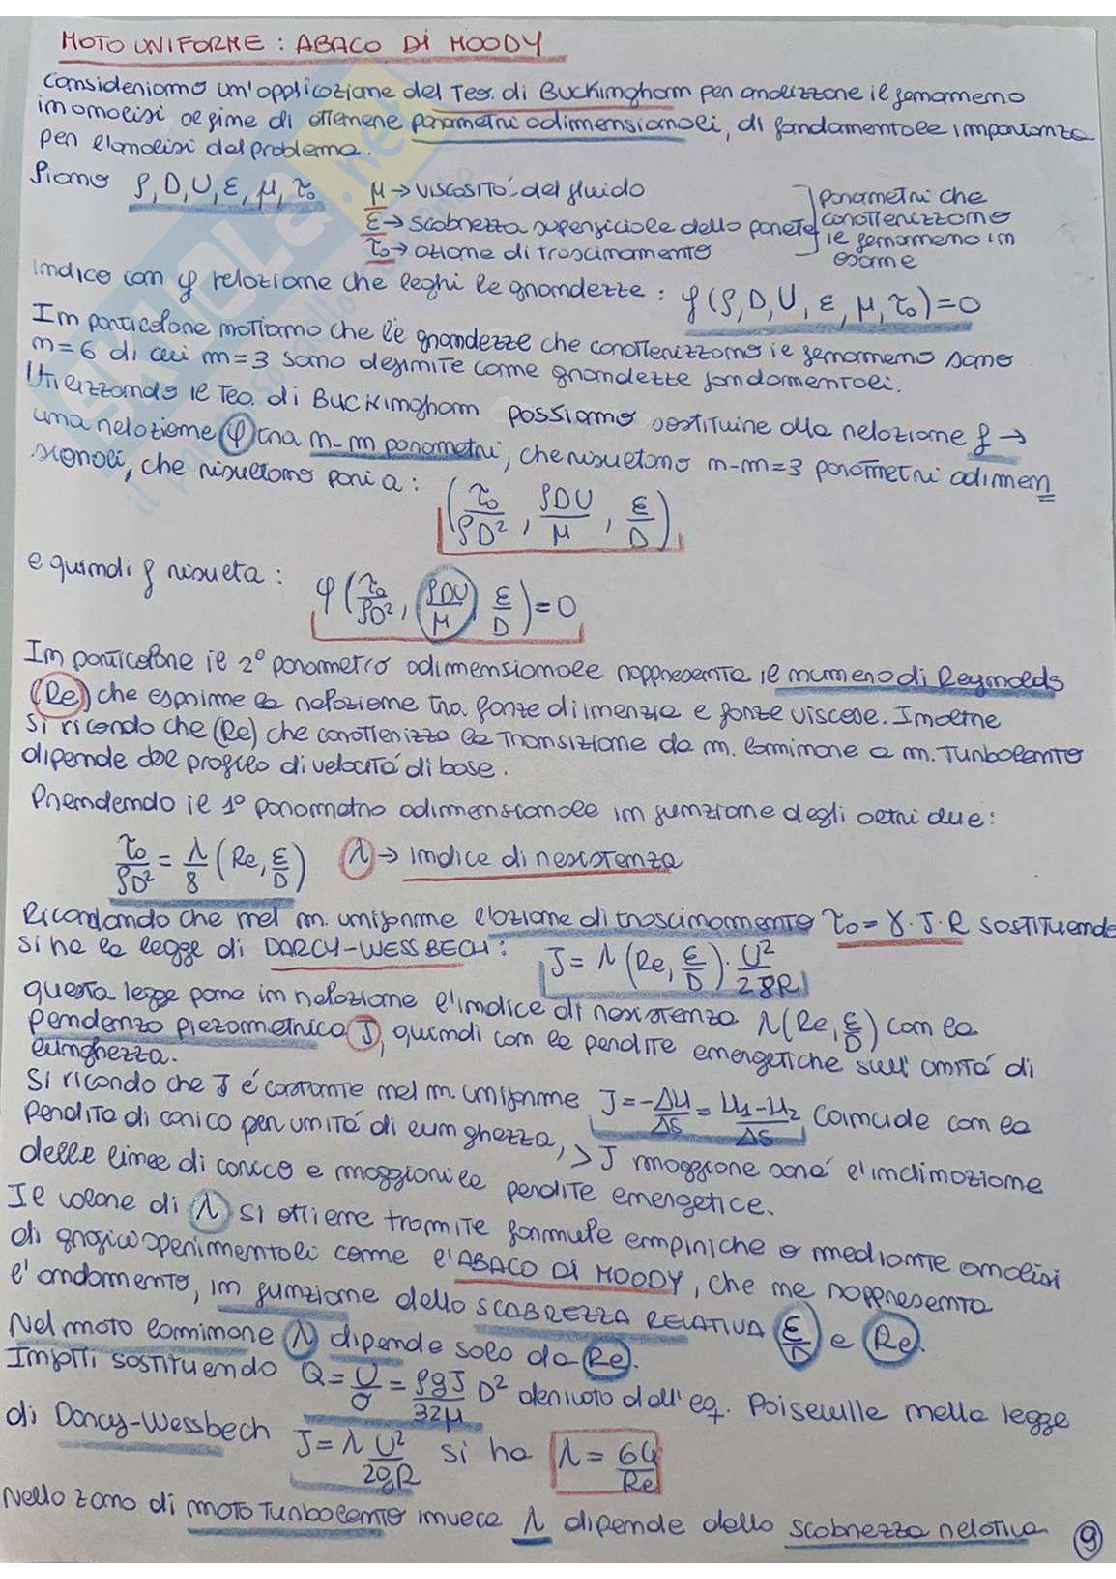 MOTO UNIFORME: ABACO DI MOODY
Consideriamo un'applicazione del Teo. di Buckingham per analizzare il fenomeno
in analisi al fine di ottenere parametri adimensionali, di fondamentale importanza
per l'analisi del problema.
Siano ρ, D, U, ε, μ, τ₀ μ → viscosità del fluido
ε → scabrezza superficiale della parete
τ₀ → azione di trascinamento
parametri che
caratterizzano
il fenomeno in
esame
Indico con φ relazione che leghi le grandezze: f(ρ, D, U, ε, μ, τ₀)=0
In particolare notiamo che le grandezze che caratterizzano il fenomeno sono
n=6 di cui m=3 sono definite come grandezze fondamentali.
Utilizzando il Teo. di Buckingham possiamo sostituire alla relazione f →
una relazione φ tra n-m parametri, che risultano n-m=3 parametri adimen
sionali, che risultano pari a: (τ₀/ρD², ρDU/μ, ε/D)
e quindi f risulta: φ(τ₀/ρD², ρDU/μ, ε/D)=0
In particolare il 2° parametro adimensionale rappresenta il numero di Reynolds
(Re) che esprime la relazione tra forze di inerzia e forze viscose. Inoltre
si ricorda che (Re) che caratterizza la transizione da m. laminare a m. turbolento
dipende dal profilo di velocità di base.
Prendendo il 1° parametro adimensionale in funzione degli altri due:
τ₀/ρD² = λ/8 (Re, ε/D) λ → indice di resistenza
Ricordando che nel m. uniforme l'azione di trascinamento τ₀ = γ·J·R sostituendo
si ha la legge di DARCY-WESSBECH: J = λ(Re, ε/D)·U²/2gR
questa legge pone in relazione l'indice di resistenza λ(Re, ε/D) con la
pendenza piezometrica J, quindi con le perdite energetiche sull'unità di
lunghezza.
Si ricorda che J é costante nel m. uniforme J = -ΔH/ΔS = H₁-H₂/ΔS coincide con la
perdita di carico per unità di lunghezza, >J maggiore sarà l'inclinazione
delle linee di carico e maggiori le perdite energetice.
Il valore di λ si ottiene tramite formule empiriche o mediante analisi
di grafici sperimentali come l'ABACO DI MOODY, che ne rappresenta
l'andamento, in funzione della SCABREZZA RELATIVA (ε/D) e (Re).
Nel moto laminare λ dipende solo da Re.
Infatti sostituendo Q = U/σ = ρgJ/32μ D² derivato dall'eq. Poiseuille nella legge
di Darcy-Wessbech J = λ U²/2gR si ha λ = 64/Re
Nella zona di moto turbolento invece λ dipende dalla scabrezza relativa
9